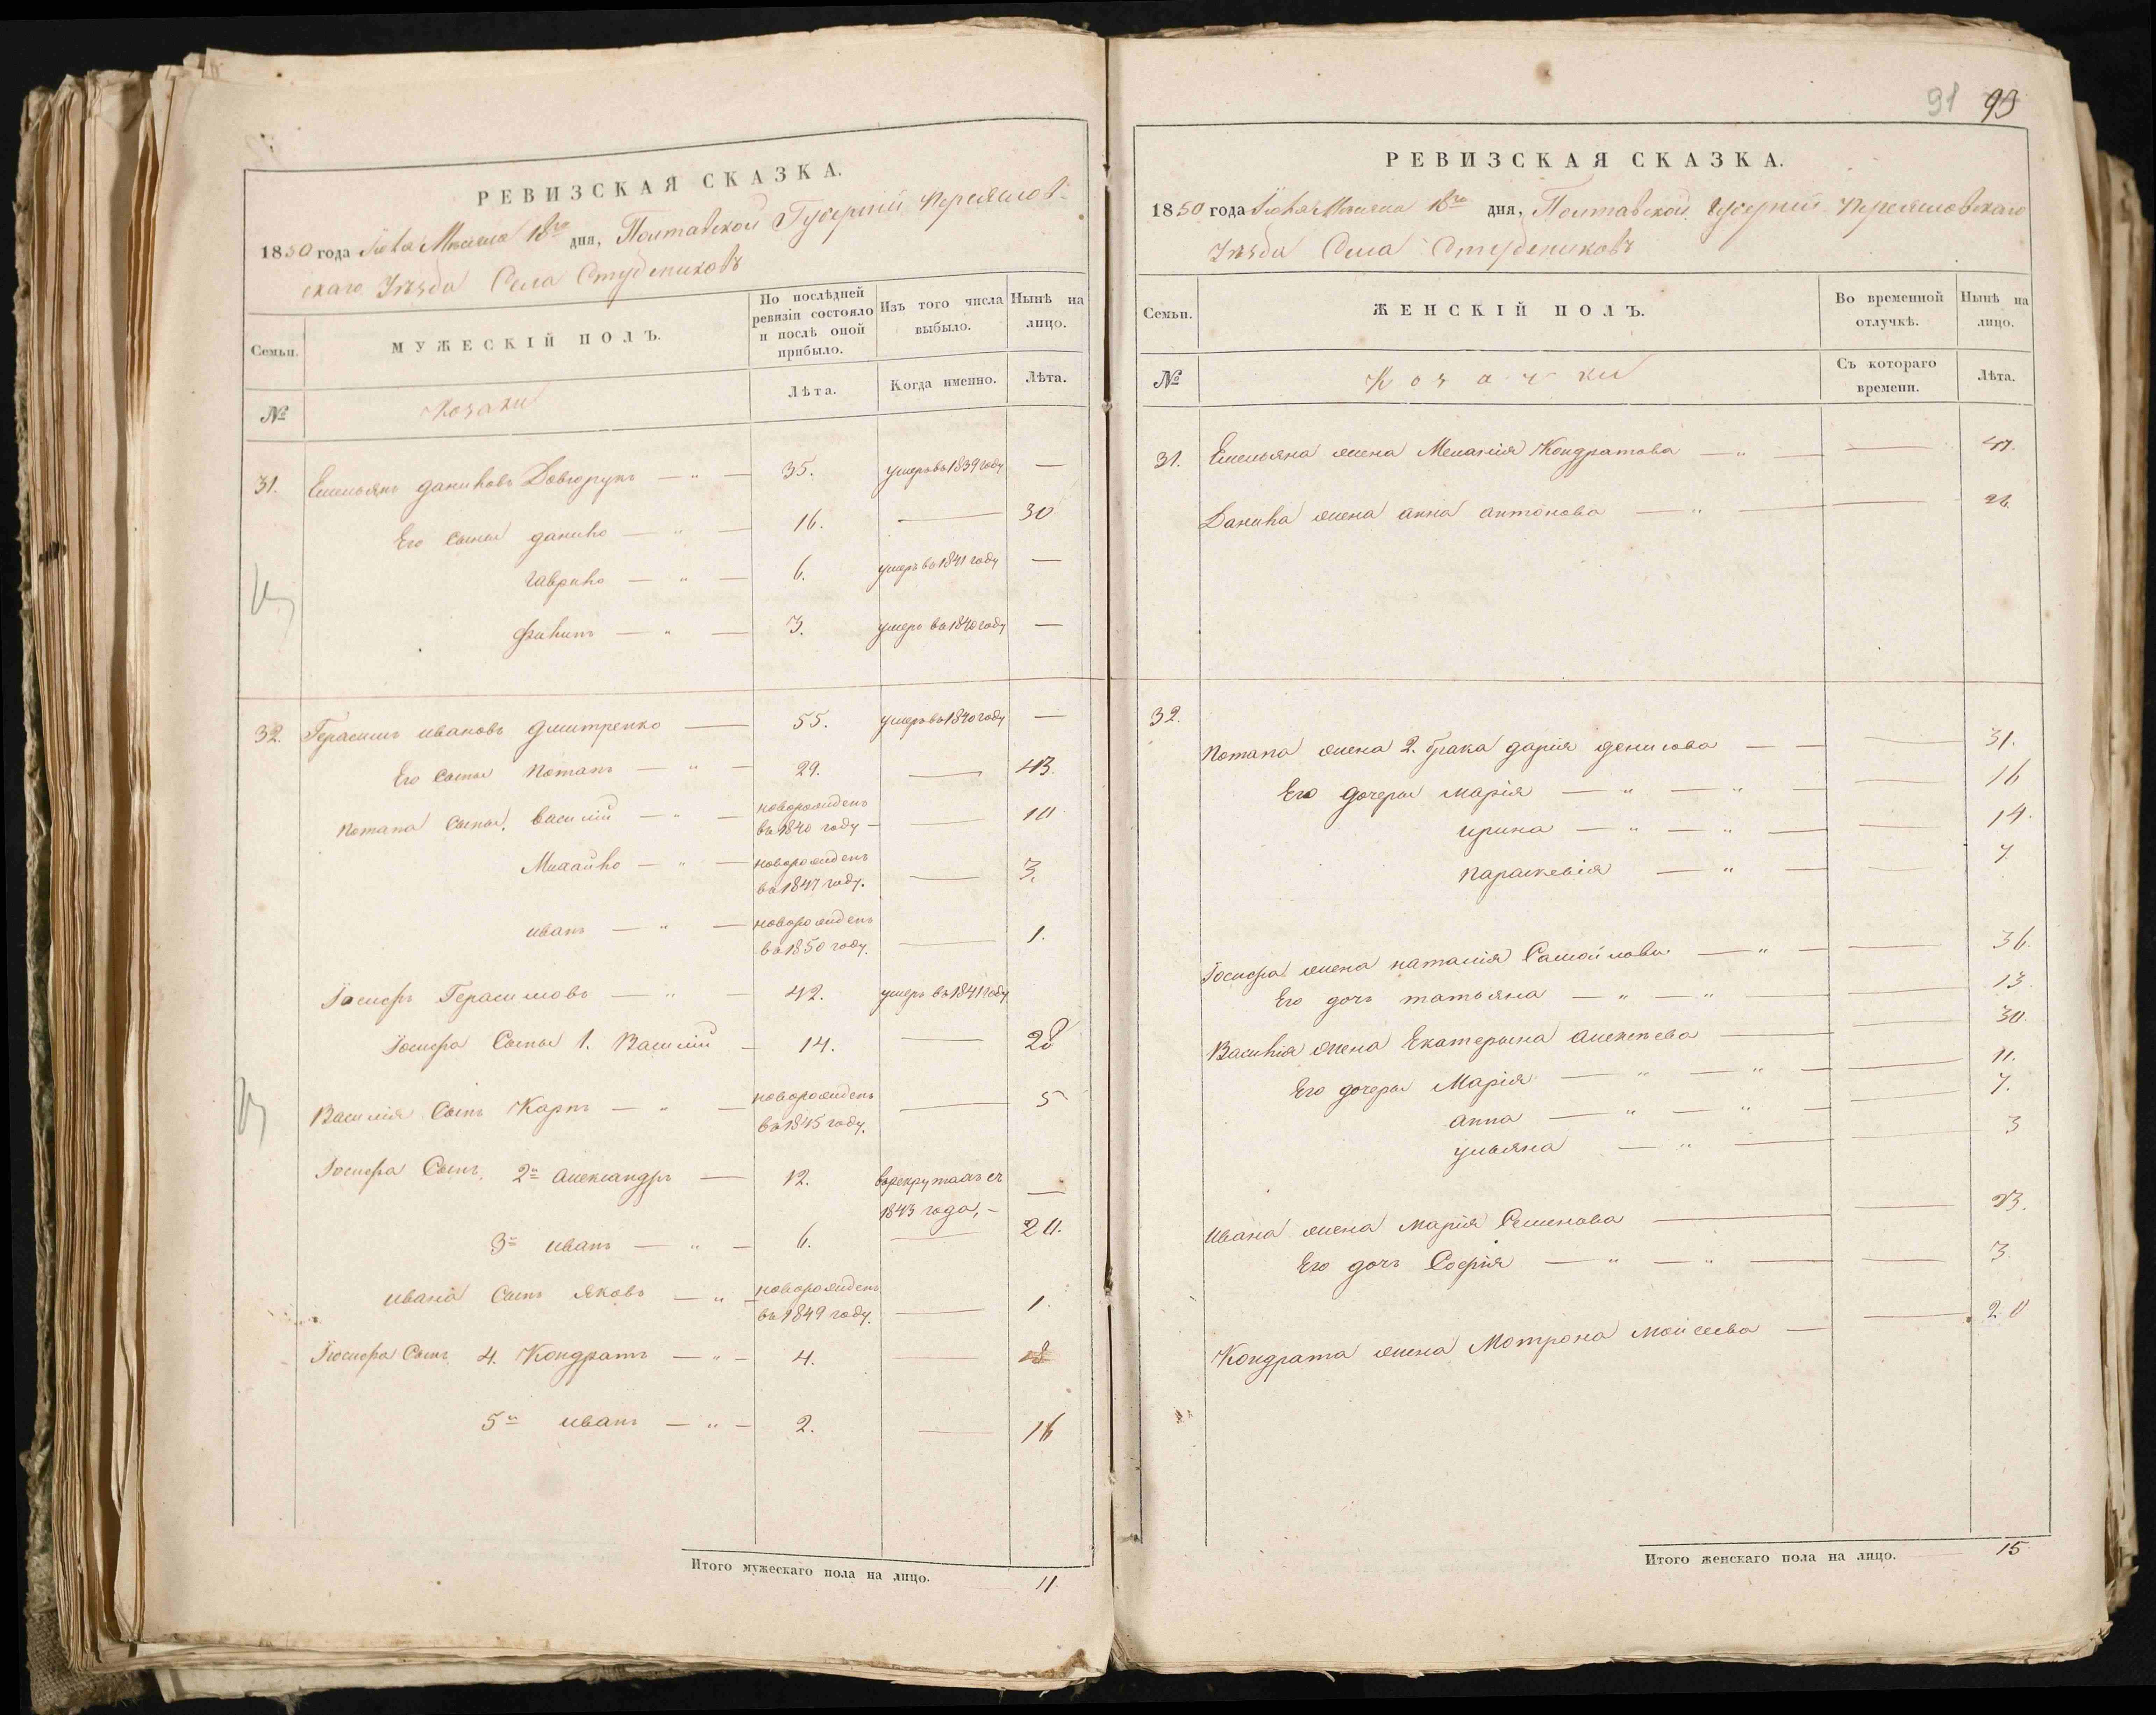 РЕВИЗСКАЯ СКАЗКА.
1850 года Іюля Мѣсяца 18го дня, Полтавской Губерніи Переяслов-
скаго Уѣзда Села Студениковъ
Семьи.
МУЖЕСКІЙ ПОЛЪ.
По послѣдней ревизіи состояло и послѣ оной прибыло.
Изъ того числа выбыло.
Нынѣ на лицо.
№
Козаки
Лѣта.
Когда именно.
Лѣта.
31. Емельянъ даниловъ Довгорукъ — „ — 35. умеръ въ 1839 году —
Его Сыны данило — „ — 16. — 30
гаврило — „ — 6. умеръ въ 1841 году —
филипъ — „ — 3. умеръ въ 1840 году —
32. Герасимъ ивановъ дмитренко — 55. умеръ въ 1840 году —
Его Сыны Потапъ — „ — 29. — 43.
Потапа Сыны, василій — „ — новорожденъ въ 1840 году — 10
Михайло — „ — новорожденъ въ 1847 году. — 3.
иванъ — „ — новорожденъ въ 1850 году. — 1.
Іосифъ Герасимовъ — „ — 42. умеръ въ 1841 году
Іосифа Сыны 1. Василій — 14. — 28
Василія Сынъ Карпъ — „ — новорожденъ въ 1845 году. — 5
Іосифа Сынъ, 2й александръ — 12. въ рекрутахъ съ 1843 года, — —
3й иванъ — „ — 6. — 20.
ивана Сынъ яковъ — „ — новорожденъ въ 1849 году. — 1.
Іосифа Сынъ 4. Кондратъ — „ — 4. — 18
5й иванъ — „ — 2. — 16
Итого мужескаго пола на лицо. 11.
91 93
РЕВИЗСКАЯ СКАЗКА.
1850 года Іюля Мѣсяца 18го дня, Полтавской Губерніи Переясловскаго
Уѣзда Села Студениковъ
Семьи.
ЖЕНСКІЙ ПОЛЪ.
Во временной отлучкѣ.
Нынѣ на лицо.
№
Козачки
Съ котораго времени.
Лѣта.
31. Емельяна жена Меланія Кондратова — „ — — 47.
Данила жена анна антонова — „ — — 26.
32.
Потапа жена 2. брака дарія денисова — — — 31.
Его дочеры марія — „ — „ — — 16
ирина — „ — „ — — 14.
параскевія — „ — — 7
Іосифа жена наталія Самойлова — „ — — 36.
Его дочь татьяна — „ — „ — — 13.
Василія жена Екатерына алексѣева — — 30.
Его дочеры Марія — „ — „ — — 11.
анна — „ — „ — — 7.
ульяна — „ — — 3
ивана жена марія Семенова — — 23.
Его дочь Софія — „ — „ — — 3.
Кондрата жена Мотрона мойсеева — — 20
Итого женскаго пола на лицо. 15